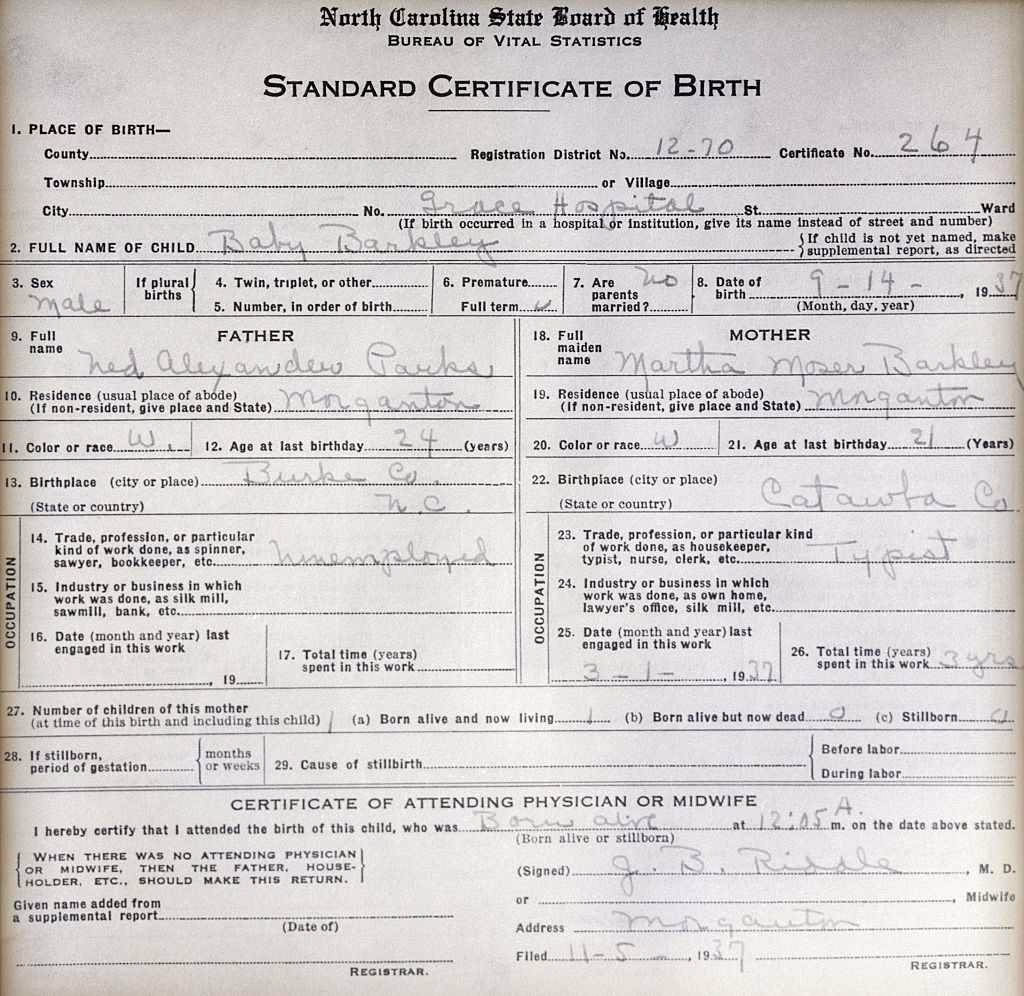 North Carolina State Board of Health
BUREAU OF VITAL STATISTICS
STANDARD CERTIFICATE OF BIRTH
1. PLACE OF BIRTH—
County Registration District No. 12-70 Certificate No. 264
Township or Village
City No. Grace Hospital St. Ward
(If birth occurred in a hospital or institution, give its name instead of street and number)
2. FULL NAME OF CHILD Baby Barkley {If child is not yet named, make supplemental report, as directed
3. Sex Male If plural births { 4. Twin, triplet, or other 5. Number, in order of birth 6. Premature Full term 7. Are parents married? no 8. Date of birth 9-14-, 1937 (Month, day, year)
FATHER
9. Full name Ned Alexander Parks
10. Residence (usual place of abode) (If non-resident, give place and State) Morganton
11. Color or race W. 12. Age at last birthday 24 (years)
13. Birthplace (city or place) Burke Co.
(State or country) N.C.
OCCUPATION
14. Trade, profession, or particular kind of work done, as spinner, sawyer, bookkeeper, etc. Unemployed
15. Industry or business in which work was done, as silk mill, sawmill, bank, etc.
16. Date (month and year) last engaged in this work , 19
17. Total time (years) spent in this work
MOTHER
18. Full maiden name Martha Moser Barkley
19. Residence (usual place of abode) (If non-resident, give place and State) Morganton
20. Color or race W 21. Age at last birthday 21 (Years)
22. Birthplace (city or place) (State or country) Catawba Co.
OCCUPATION
23. Trade, profession, or particular kind of work done, as housekeeper, typist, nurse, clerk, etc. Typist
24. Industry or business in which work was done, as own home, lawyer's office, silk mill, etc.
25. Date (month and year) last engaged in this work 3-1-, 1937
26. Total time (years) spent in this work 3 yrs
27. Number of children of this mother (at time of this birth and including this child) 1 (a) Born alive and now living 1 (b) Born alive but now dead 0 (c) Stillborn 0
28. If stillborn, period of gestation { months or weeks 29. Cause of stillbirth { Before labor During labor
CERTIFICATE OF ATTENDING PHYSICIAN OR MIDWIFE
I hereby certify that I attended the birth of this child, who was Born alive at 12:05 A. m. on the date above stated.
(Born alive or stillborn)
{ WHEN THERE WAS NO ATTENDING PHYSICIAN OR MIDWIFE, THEN THE FATHER, HOUSEHOLDER, ETC., SHOULD MAKE THIS RETURN. }
(Signed) J. B. Riddle, M. D.
or , Midwife
Given name added from a supplemental report
(Date of)
Address Morganton
Filed 11-5, 1937
REGISTRAR. REGISTRAR.